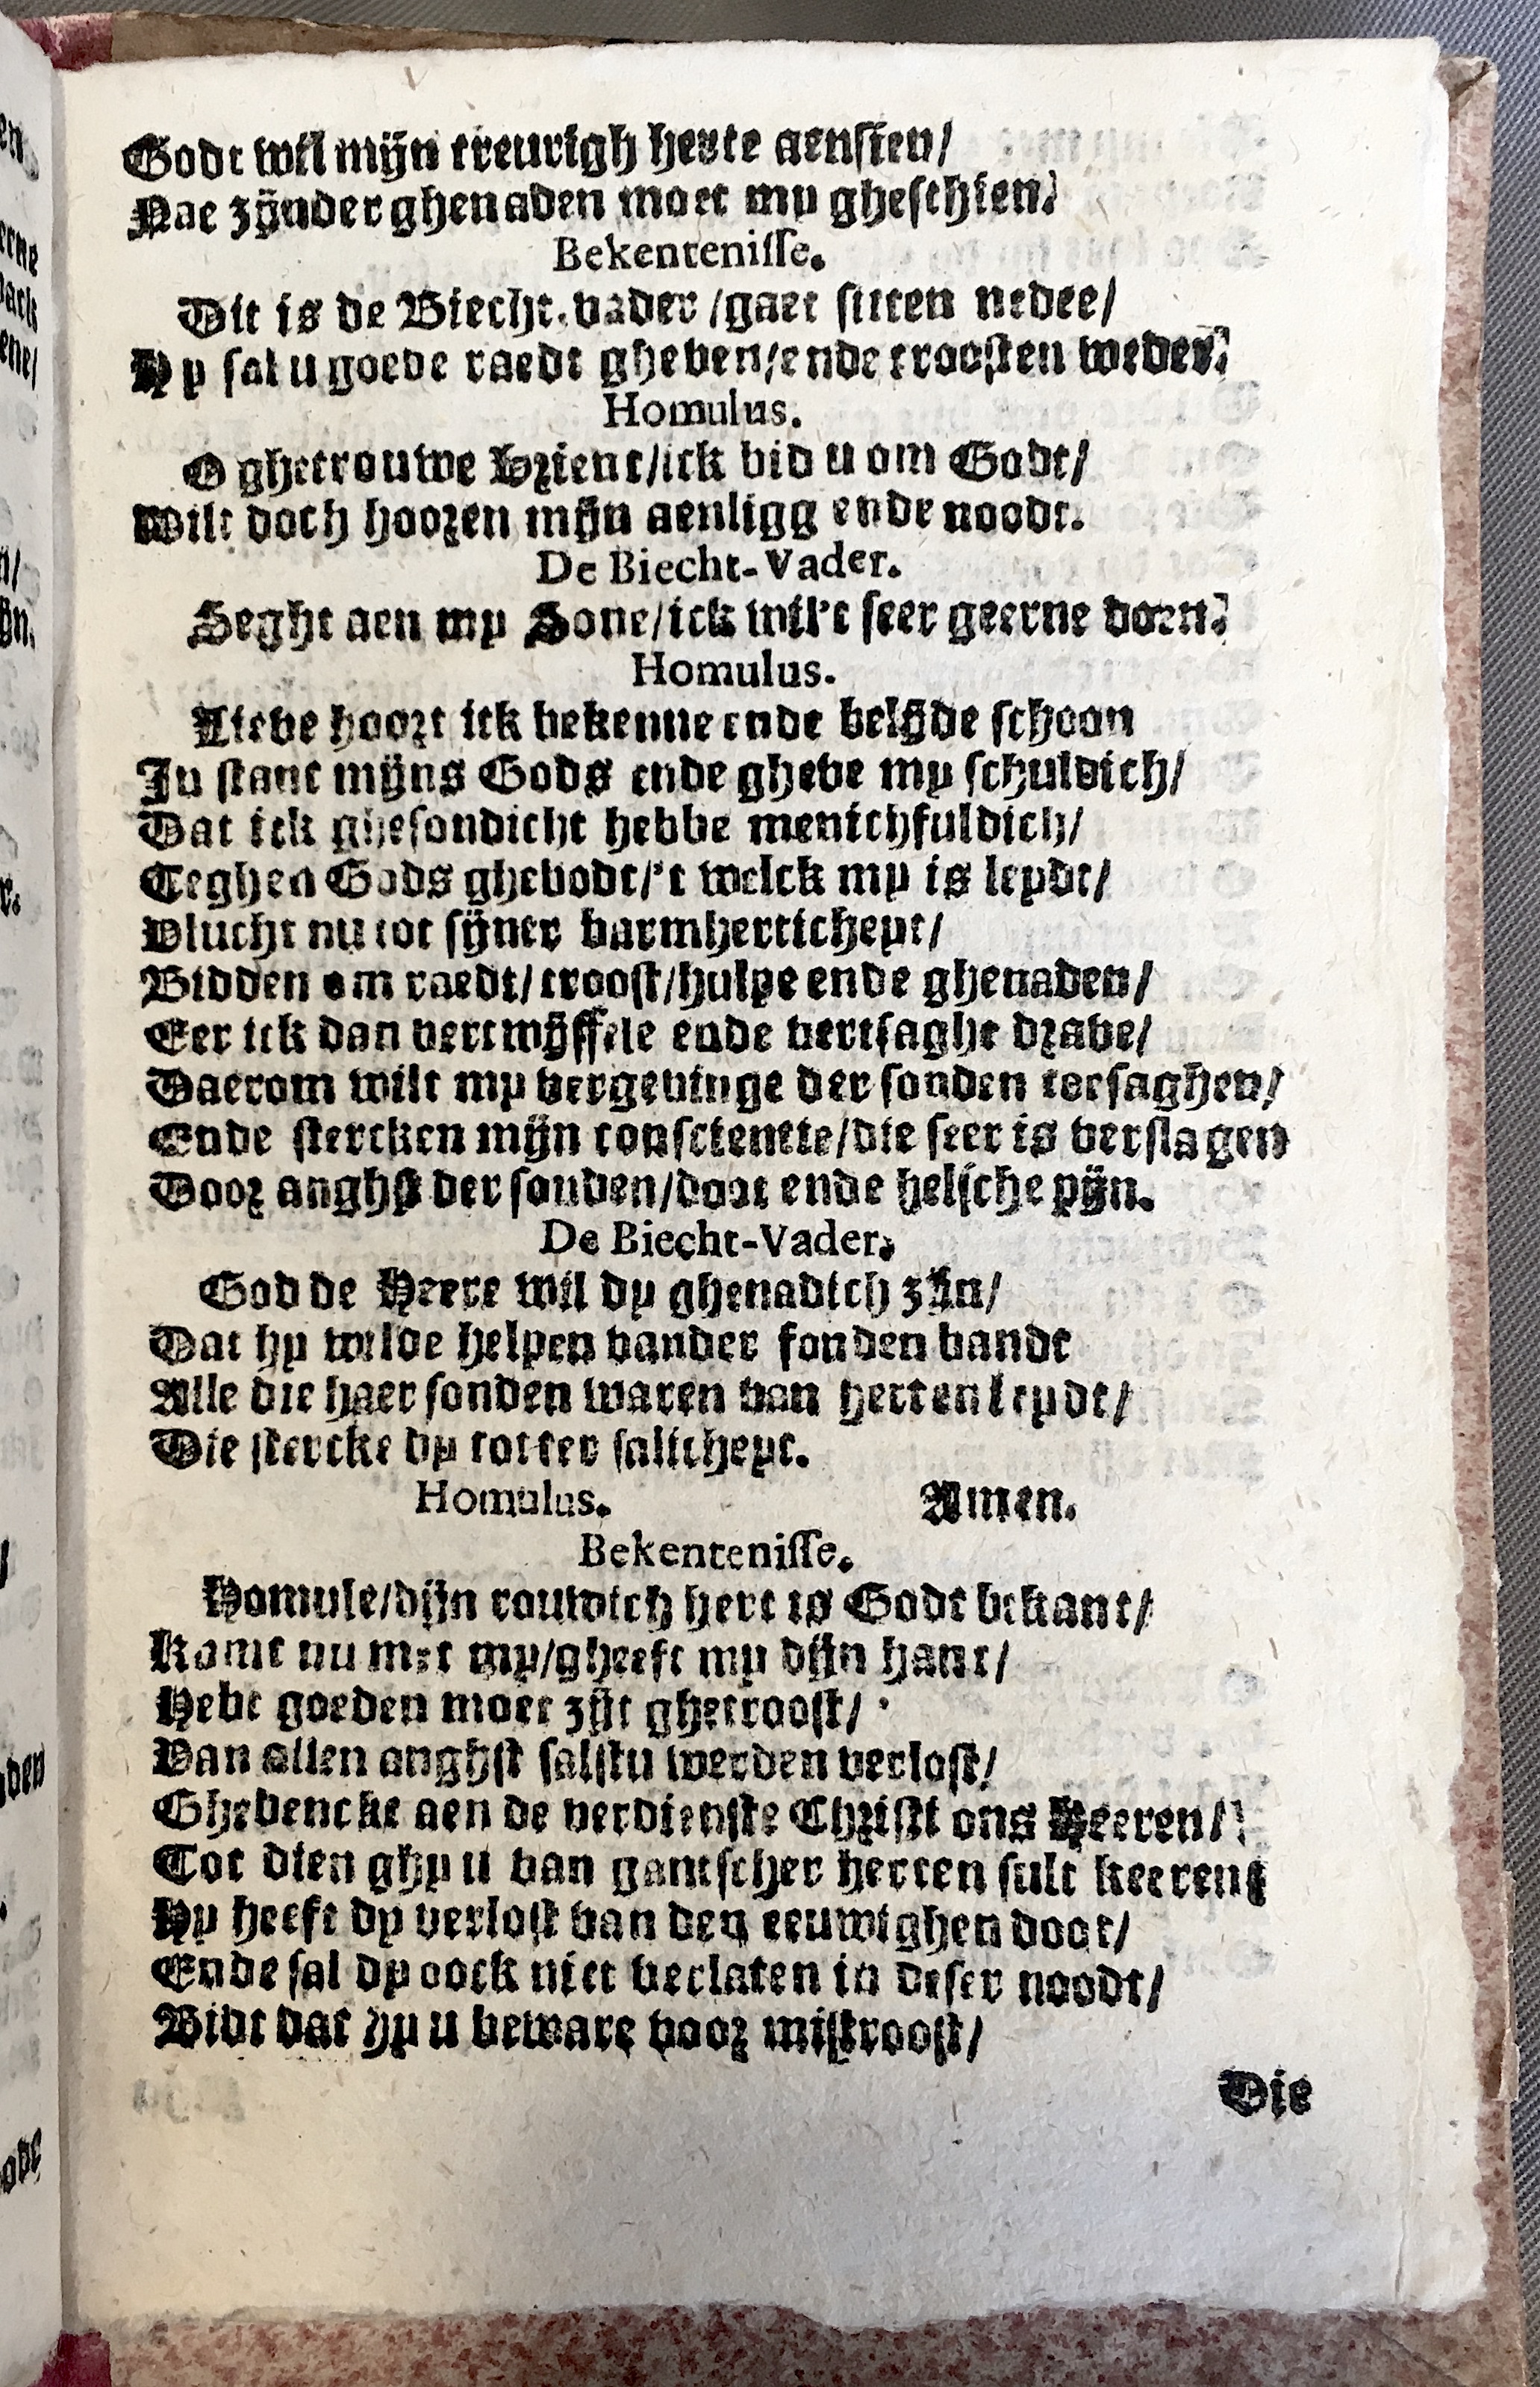 Godt wil mijn treurigh herte aensien/
Nae zijnder ghenaden moet my gheschien.
Bekentenisse.
Dit is de Biecht-vader/gaet sitten neder/
Hy sal u goede raedt gheven/ende troosten weder.
Homulus.
O ghetrouwe Vrient/ick bid u om Godt/
Wilt doch hooren mijn aenligg ende noodt.
De Biecht-Vader.
Seght aen my Sone/ick wil't seer geerne doen.
Homulus.
Lieve hoort ick bekenne ende belijde schoon
In stant mijns Gods ende gheve my schuldich/
Dat ick ghesondicht hebbe menichfuldich/
Teghen Gods ghebodt/'t welck my is leydt/
Vlucht nu tot sijner barmherticheyt/
Bidden om raedt/troost/hulpe ende ghenaden/
Eer ick dan vertwijffele ende vertsaght drave/
Daerom wilt my vergevinge der sonden toesaghen/
Ende stercken mijn conscientie/die seer is verslagen
Door anghst der sonden/doot ende helsche pijn.
De Biecht-Vader.
God de Heere wil dy ghenadich zijn/
Dat hy wilde helpen vander sonden bandt
Alle die haer sonden waren van herten leydt/
Die stercke dy totter salicheyt.
Homulus. Amen.
Bekentenisse.
Homule/dijn rouwich hert is Godt bekant/
Komt nu met my/gheeft my dijn hant/
Hebt goeden moet zijt ghetroost/
Van allen anghst salstu werden verlost/
Ghedencke aen de verdienste Christi ons Heeren/
Tot dien ghy u van gantscher herten sult keeren/
Hy heeft dy verlost van den eeuwighen doot/
Ende sal dy oock niet verlaten in deser noodt/
Bidt dat hy u beware voor mistroost/
Die